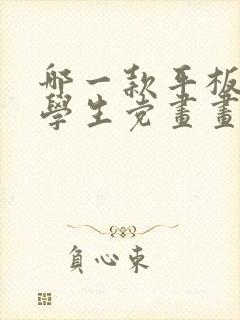 哪一款平板
學生党畫畫
負心東